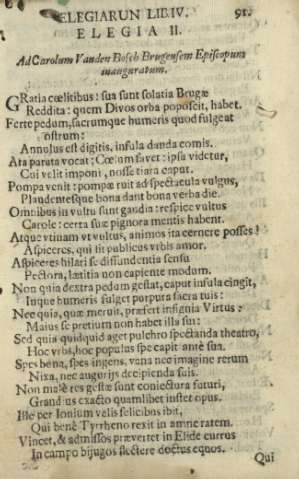 ELEGIARUN LIB. IV. 91.
ELEGIA II.
Ad Carolum Vanden Bosch Brugensem Episcopum
inauguratum.
GRatia cœlitibus: sua sunt solatia Brugæ
Reddita: quem Divos orba poposcit, habet.
Ferte pedum, sacrumque humeris quod fulgeat
ostrum:
Annulus est digitis, insula danda comis.
Ata parata vocat: Cœlum favet: ipsa videtur,
Cui velit imponi, nosse tiara caput.
Pompa venit: pompæ ruit ad spectacula vulgus,
Plaudentesque bona dant bona verba die.
Omnibus in vultu sunt gaudia: respice vultus
Carole: certa suæ pignora mentis habent.
Atque vtinam vt vultus, animos ita cernere posses!
Aspiceres, qui sit publicus vrbis amor.
Aspiceres hilari se diffundentia sensu
Pectora, lætitia non capiente modum.
Non quia dextra pedum gestat, caput insula cingit,
Inque humeris fulget purpura sacra tuis:
Nec quia, quæ meruit, præfert insignia Virtus:
Maius se pretium non habet illa sui:
Sed quia quidquid aget pulchro spectanda theatro,
Hoc vrbs, hoc populus spe capit ante sua.
Spes bona, spes ingens, vana nec imagine rerum
Nixa, nec augurijs decipienda suis.
Non malè res gestæ sunt coniectura futuri,
Grandius exacto quamlibet instet opus.
Iste per Ionium velis felicibus ibit,
Qui benè Tyrrheno rexit in amne ratem.
Vincet, & admissos prævertet in Elide currus
In campo bijugos flectere doctus equos.
Qui